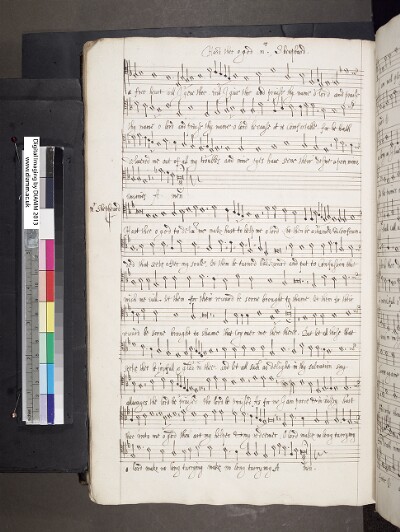 Hast thee o god mr Shepheard.
a free heart will I give thee and praise thy name o lord and praise
thy name o lord and praise thy name o lord because it is so comfortable for he hath
delivered me out of all my troubles and mine eyes have seene their desire upon mine
enemies
mr Shepheard
Hast thee o god to deliver me make hast to help me o lord let them be ashamed & confounded
that seeke after my soule let them be turned backward and put to confusion that
wish me evill let them for their reward be soone brought to shame let them for their
reward be soone brought to shame that cry over me there there. But let all those that
seeke thee be joyfull & glad in thee. and let all such as delight in thy salvation say
alwayes the lord be praised the lord be praised, as for me I am poore & in misery, hast
thee unto me o god thou art my helper & my redeemer o lord make no long tarrying
o lord make no long tarrying make no long tarrying
Digital Imaging by DIAMM 2013
www.diamm.ac.uk